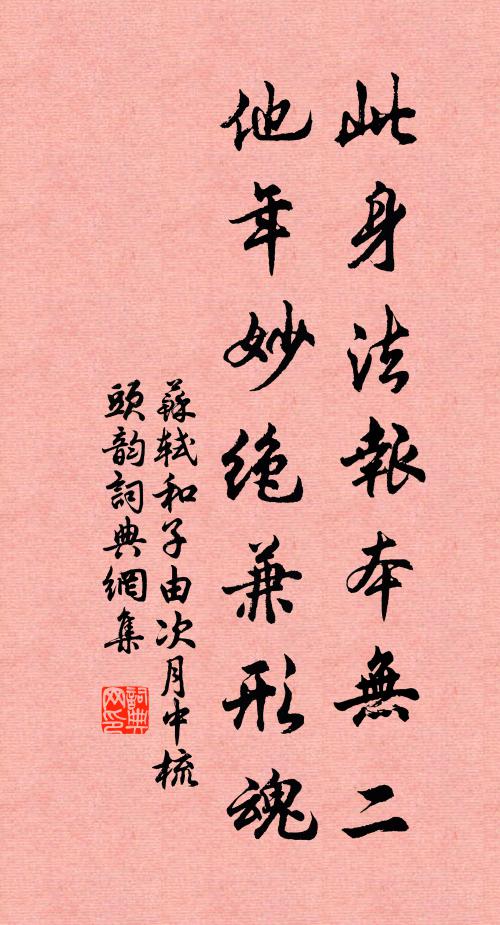 此身法報本無二
他年妙絶兼形魂
蘇軾和子由次月中梳
頭韵詞典網集
詞典
网印